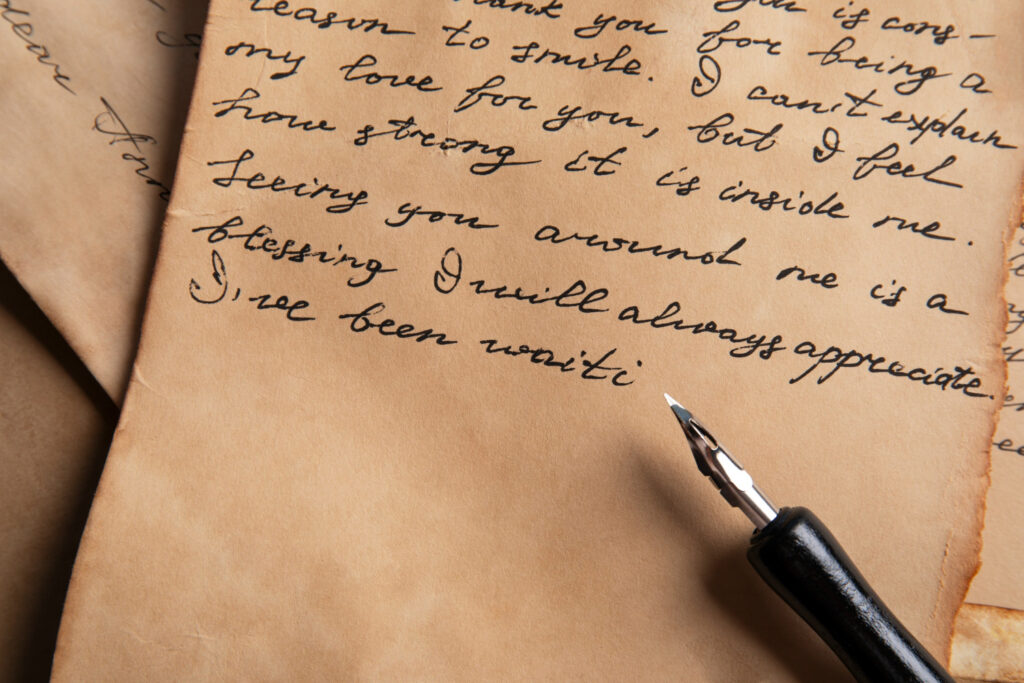 thank you for being a
reason to smile. I can't explain
my love for you, but I feel
how strong it is inside me.
Seeing you around me is a
blessing I will always appreciate.
I've been waiti
dear Ann